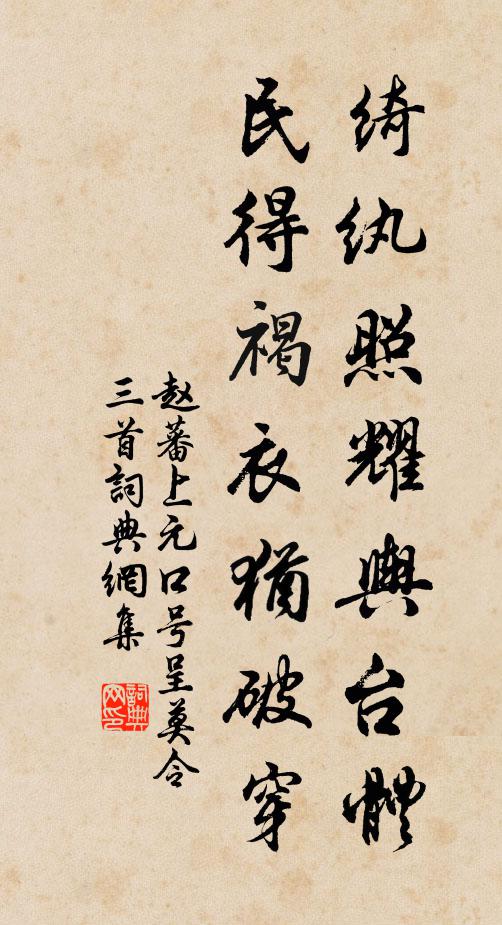 绮纨照耀舆台體
民得褐衣犹破穿
赵蕃上元口号呈莫令
三首詞典網集
詞典网印